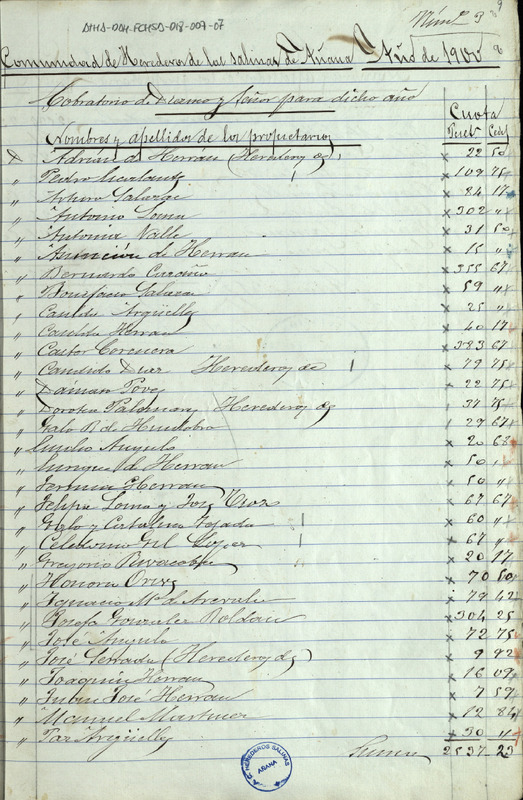 AHHD-004-FCHSD-018-007-07
Núm.º 3
Comunidad de Herederos de las Salinas de Añana Año de 1900
Cobratorio de Diezmo y Señor para dicho año
Cuota
Nombres y apellidos de los propietarios Peset Cents
D Adrian de Herran (Herederos de) 22 50
" Pedro 109 75
" Arturo Salazar 84 17
" Antonio Loma 302 "
" Antonia Valle 31 50
" Asuncion de Herran 15 "
" Bernardo 355 67
" Bonifacio Salazar 59 "
" Candida Argüelles 25 "
" Candida Herran 40 17
" Castor Corcuera 383 67
" Candido Diez Herederos de 79 75
" Damaso Poves 22 75
" Dorotea Palomares Herederos de 37 75
" Galo R. de Huidobro 29 67
" Emilio Angulo 20 68
" Enrique de Herran 50 "
" Fermin Herran 50 "
" Felipe Loma y José Oroz 67 67
" Galo y Catalina Tejada 60 "
" Celestino Gil Lopez 67 "
" Gregorio 20 17
" Honora Orive 70 50
" Ignacio Mª de Arevalo 79 42
" Josefa Gonzalez Roldan 304 25
" José Angulo 72 75
" José Serrada (Herederos de) 9 92
" Joaquin Herran 16 09
" Juan José Herran 7 59
" Manuel Martinez 12 84
" Paz Argüelles 30 "
Suman 2537 23
HEREDEROS SALINAS
AÑANA